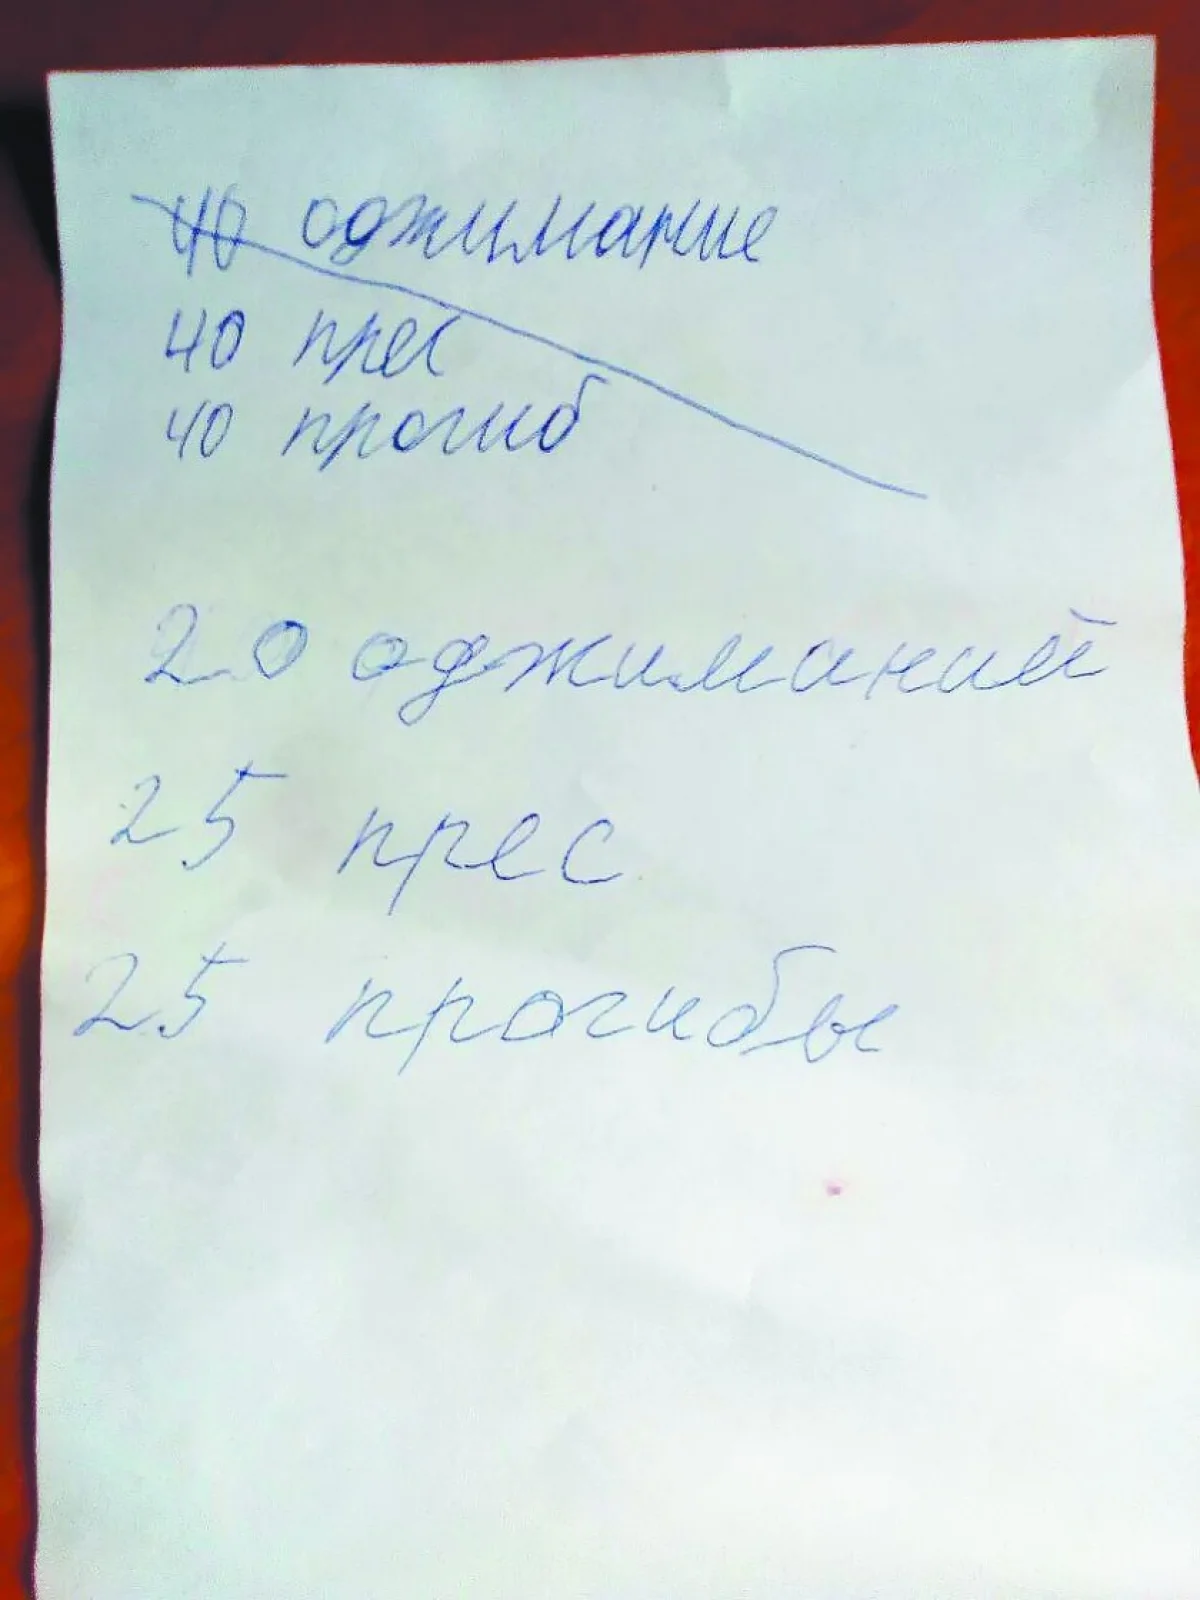 40 оджимание
40 прес
40 прогиб
20 оджиманий
25 прес
25 прогибы